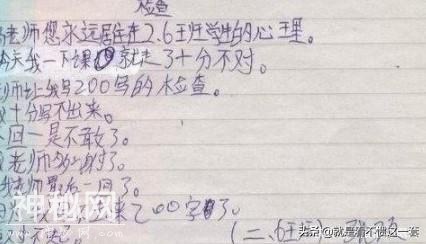 检查
老师您永远居住在2.6班学生的心里。
今天我一下课就走了十分不对。
老师让我写200写的检查。
十分写不出来。
回一是不敢了。
老师
老师最后一回了。
来200字了。
对不起。
(二、6班)
神秘网
头条 @就是看不惯这一套